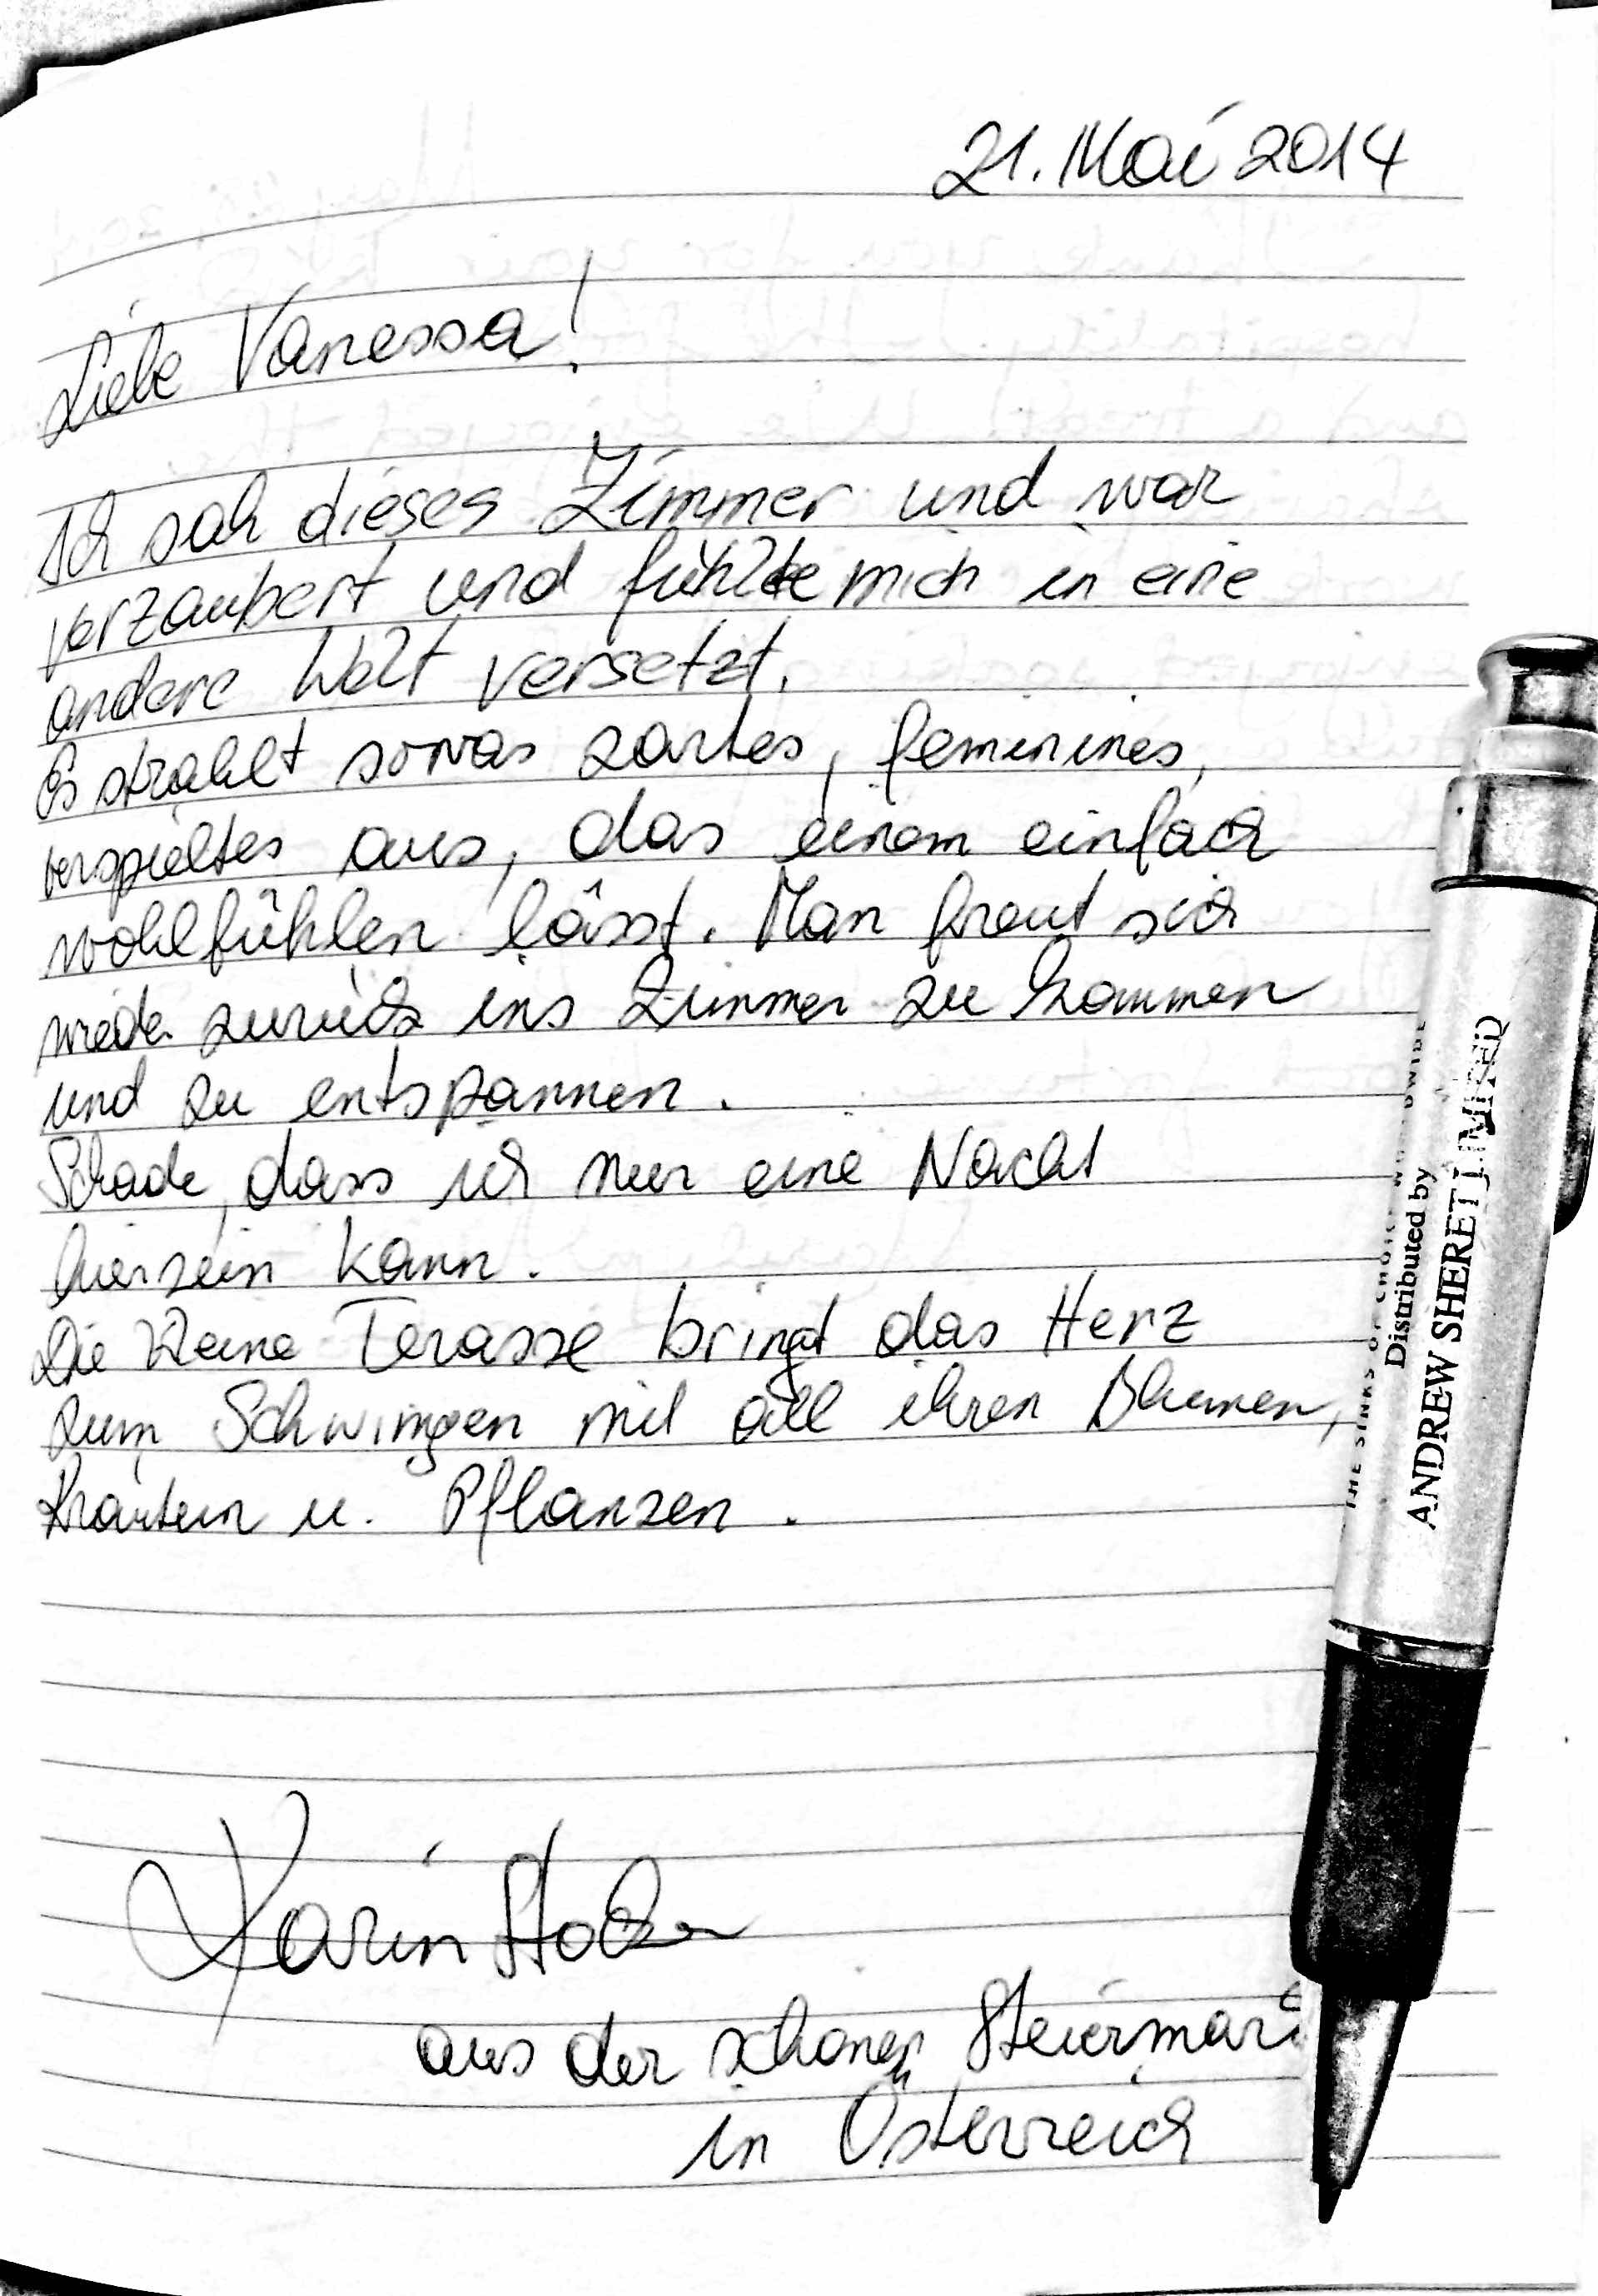 21. Mai 2014
Liebe Vanessa!
Ich sah dieses Zimmer und war
verzaubert und fühlte mich in eine
andere Welt versetzt.
Es strahlt sowas zartes, feminines,
verspieltes aus, das einem einfach
wohlfühlen lässt. Man freut sich
wieder zurück ins Zimmer zu kommen
und zu entspannen.
Schade, dass ich nur eine Nacht
hiersein kann.
Die kleine Terasse bringt das Herz
zum Schwingen mit all ihren Blumen,
Kräutern u. Pflanzen.
Karin
aus der schönen Steiermark
in Österreich
THE SINKS OF
Distributed by
ANDREW SHERET LIMITED